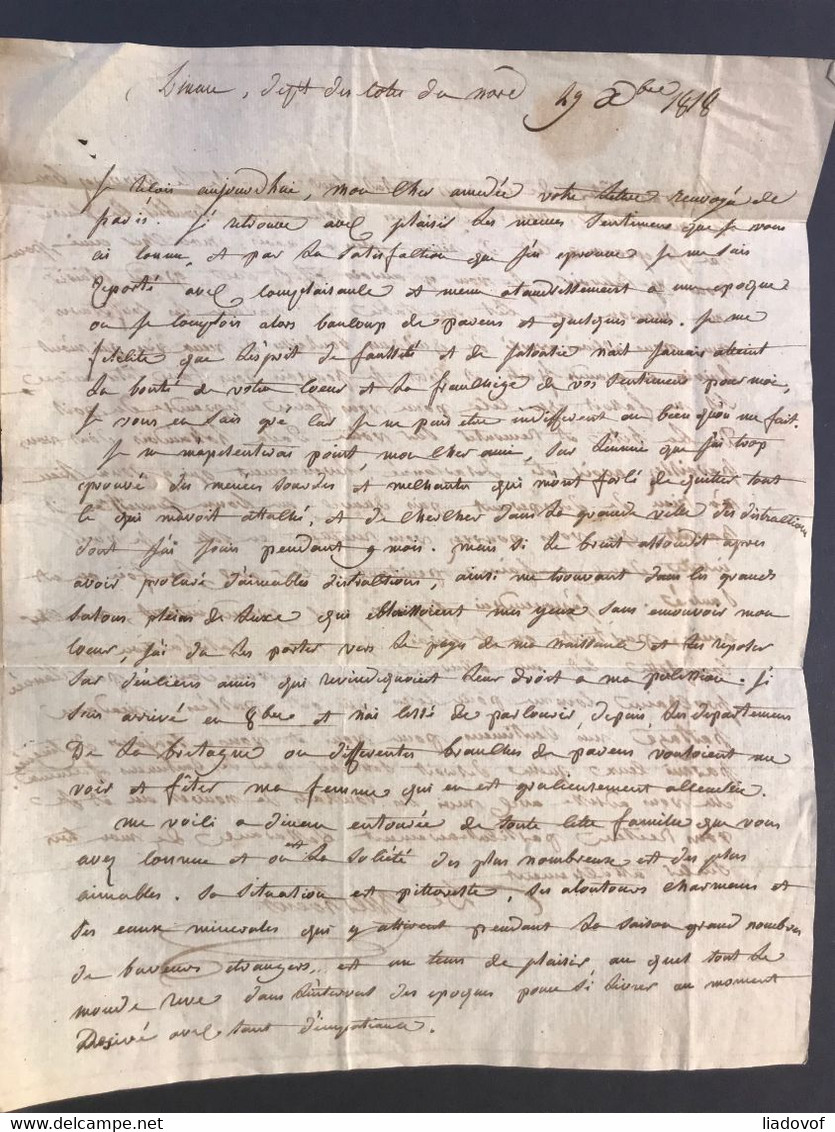 Dinan, dept des cotes du nord 29 Xbre 1818
Je recois aujourdhui, mon cher amedée votre lettre renvoyée de
paris. J'i retrouve avec plaisir les memes sentimens que je vous
ai connu, et par la satisfaction que j'en eprouve je me suis
reporté avec complaisance et meme attendrissement a une epoque
ou je comptois alors baucoup de parens et quelques amis. je me
felicite que l'esprit de fausseté et de jalousie n'ait jamais atteint
la bonté de votre coeur et la franchise de vos sentimens pour moi,
je vous en sais gré car je ne puis etre indifferent au bien qu'on me fait.
Je ne point, mon cher ami, sur l'ennui que j'ai trop
eprouvé des menées sourdes et mechantes qui m'ont forcé de quitter tout
ce qui m'avoit attaché, et de chercher dans la grande ville des distractions
dont j'ai joui pendant 9 mois. mais si le bruit assourdit apres
avoir procuré d'aimables distractions, ainsi me trouvant dans les grands
salons pleins de luxe qui eblouissoient mes yeux sans emouvoir mon
coeur, j'ai du les porter vers le pays de ma naissance et les reposer
sur d'enciens amis qui revindiquoient leur droit a ma possession. Ji
suis arrivé en 8bre et n'ai cessé de parcourir, depuis, les departemens
De la bretagne ou differentes branches de parens vouloient me
voir et fêter ma femme qui en est gratieusement accueillie.
me voila a dinan entourée de toute cette famille que vous
avez connue et ou est la société des plus nombreuse et des plus
aimables. Sa situation est pittoreste, ses alentours charmans et
ses eaux minerales qui y attirent pendant la saison grand nombres
de baveurs etrangers, est un tems de plaisir au quel tout le
monde reve dans l'interval des epoques pour si livrer au moment
Desiré avec tant d'impatiance.
liadovof